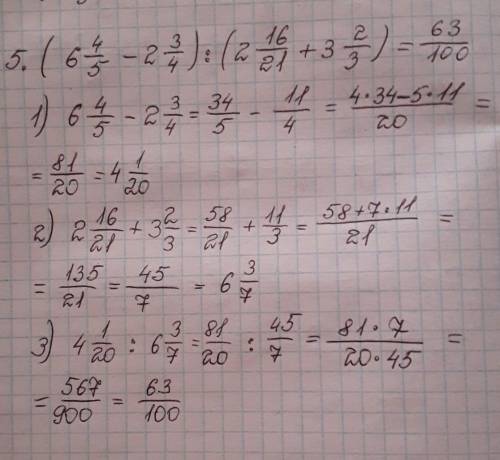 5. (6 4/5 − 2 3/4) : (2 16/21 + 3 2/3) = 63/100
1) 6 4/5 − 2 3/4 = 34/5 − 11/4 = 4·34−5·11/20 =
= 81/20 = 4 1/20
2) 2 16/21 + 3 2/3 = 58/21 + 11/3 = 58+7·11/21 =
= 135/21 = 45/7 = 6 3/7
3) 4 1/20 : 6 3/7 = 81/20 : 45/7 = 81·7/20·45 =
= 567/900 = 63/100